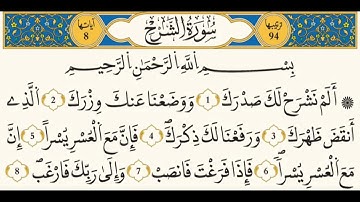 ترتيبها 94 سُورَةُ الشَّرْحِ آياتها 8
بِسْمِ اللَّهِ الرَّحْمَٰنِ الرَّحِيمِ
أَلَمْ نَشْرَحْ لَكَ صَدْرَكَ 1 وَوَضَعْنَا عَنكَ وِزْرَكَ 2 الَّذِے
أَنقَضَ ظَهْرَكَ 3 وَرَفَعْنَا لَكَ ذِكْرَكَ 4 فَإِنَّ مَعَ الْعُسْرِ يُسْراً 5 إِنَّ
مَعَ الْعُسْرِ يُسْراً 6 فَإِذَا فَرَغْتَ فَانصَبْ 7 وَإِلَىٰ رَبِّكَ فَارْغَب 8